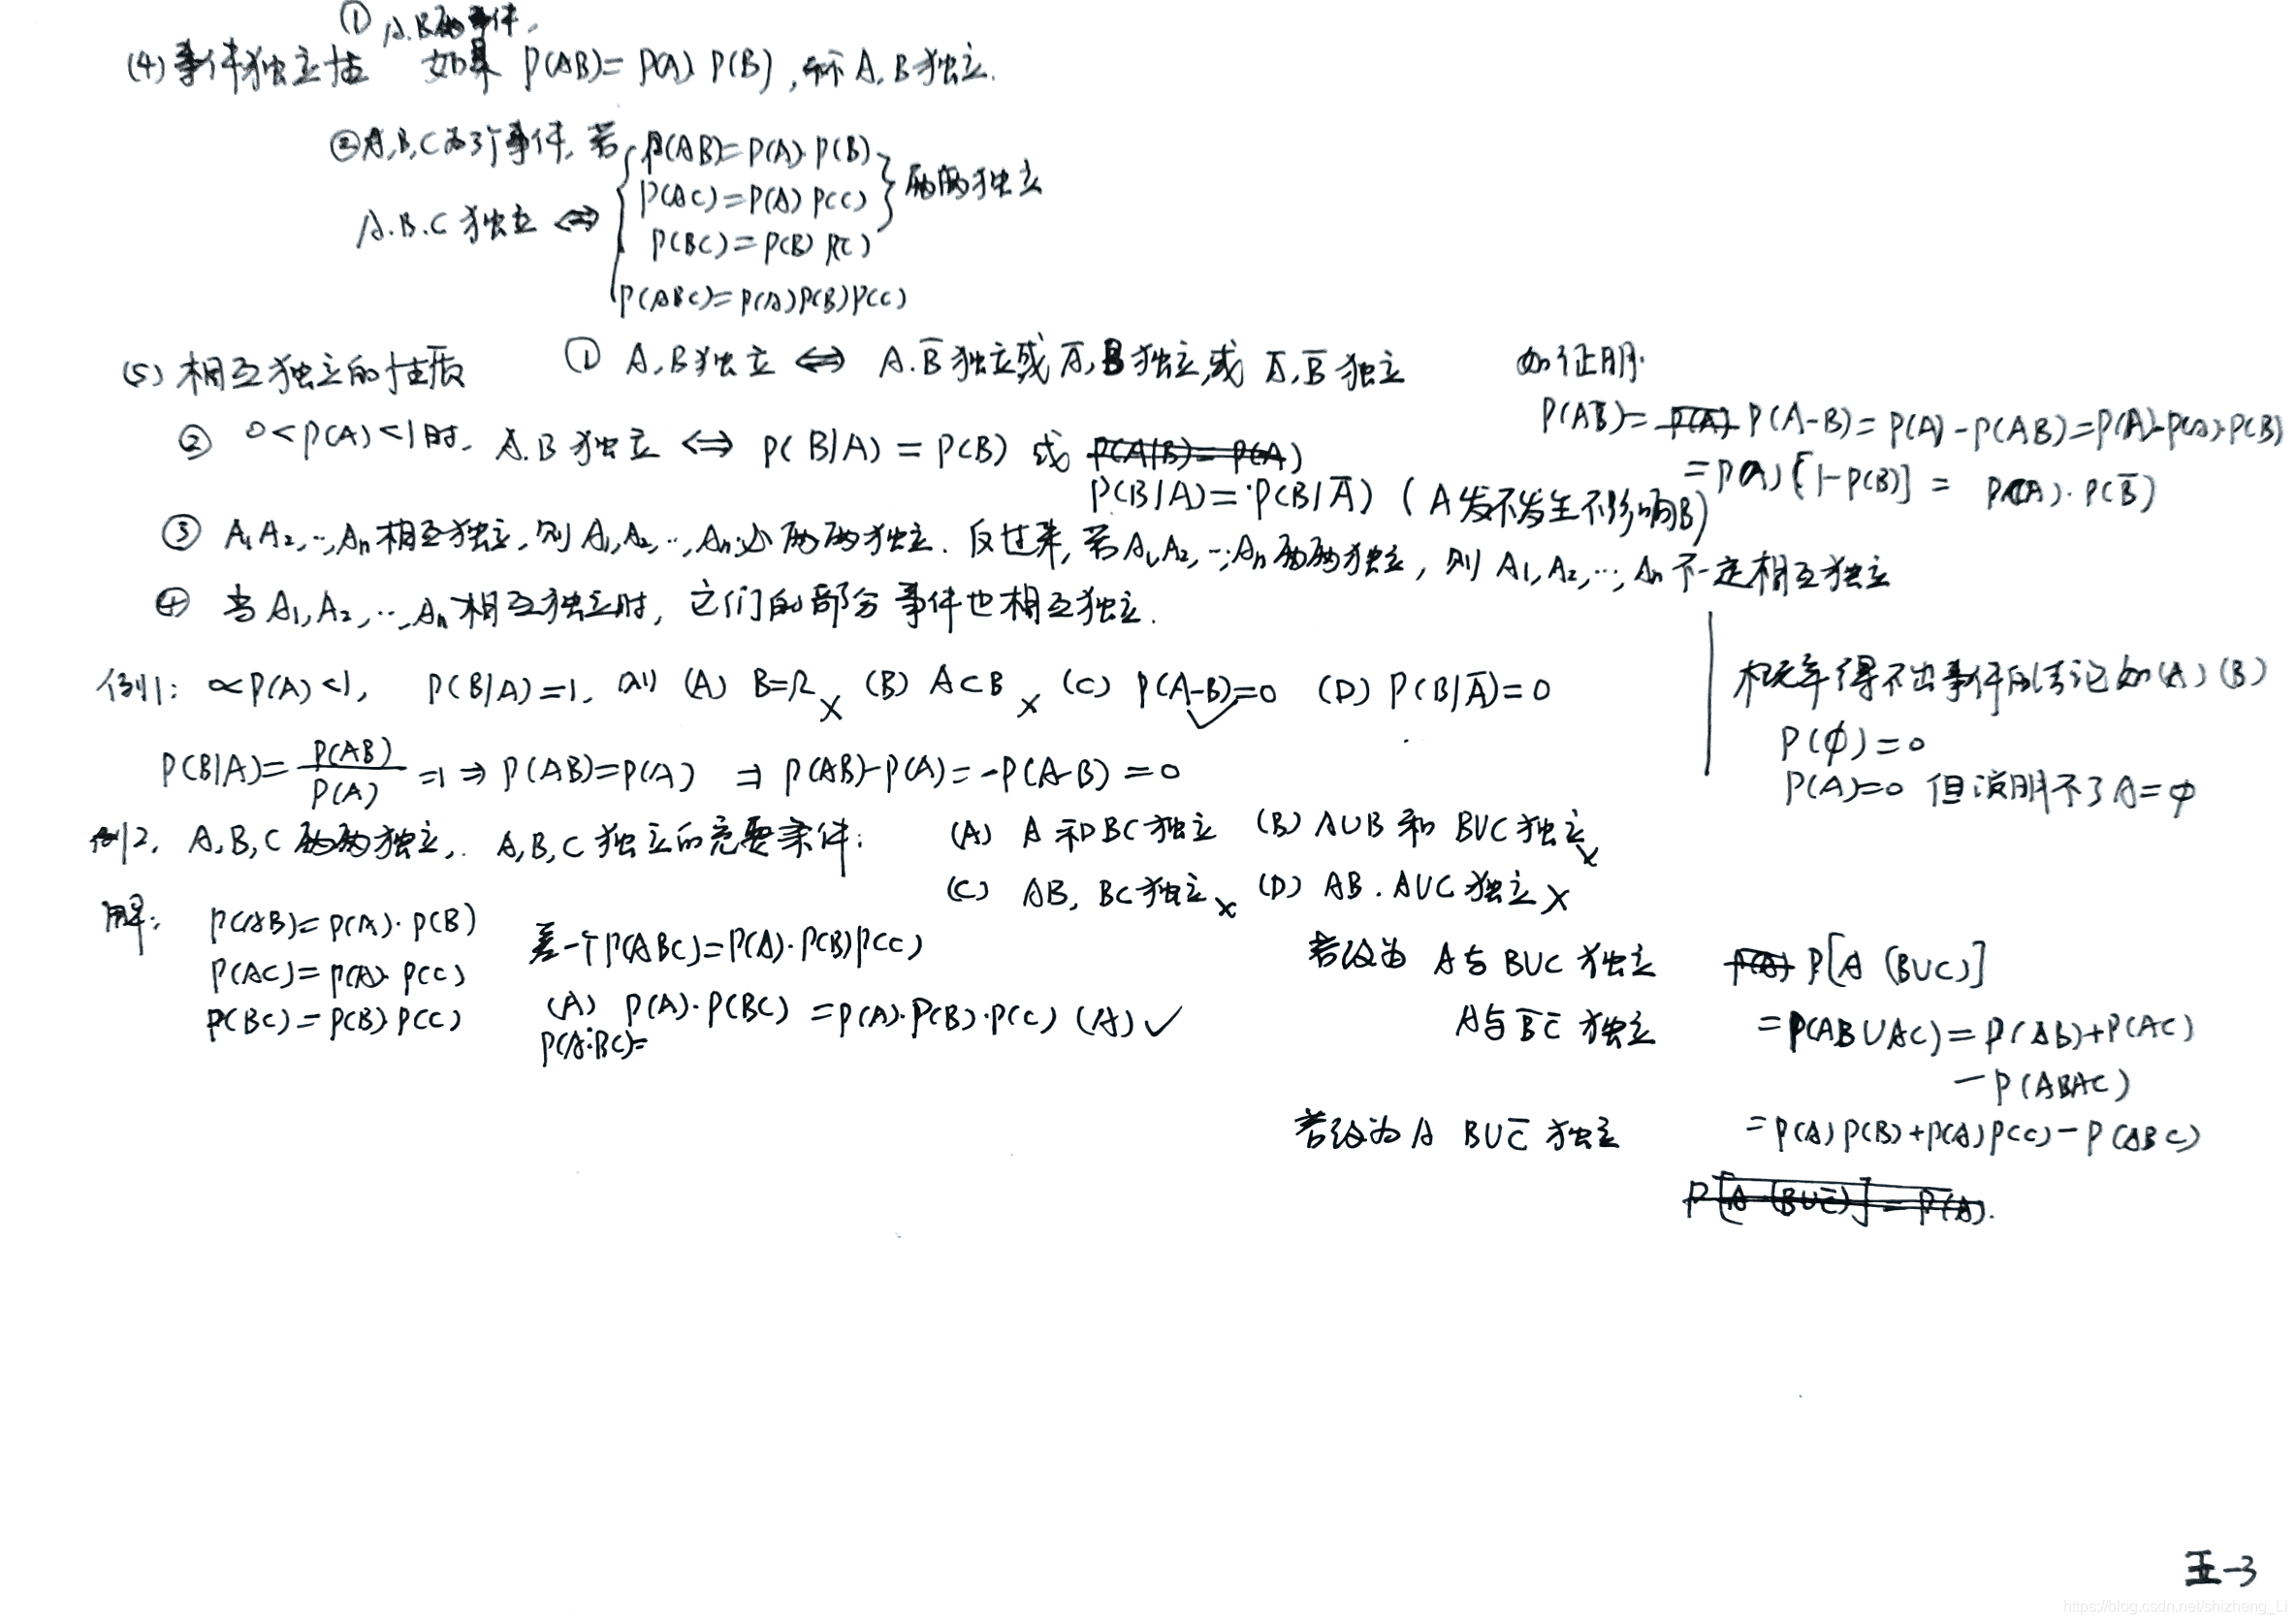 ① A.B两事件,
(4) 事件独立性 如果 P(AB)=P(A) P(B), 称 A, B 独立.
② A,B,C为3个事件, 若 P(AB)=P(A)·P(B)
P(AC)=P(A) P(C) 两两独立
A.B.C 独立 ⇔
P(BC)=P(B) P(C)
P(ABC)=P(A)P(B)P(C)
(5) 相互独立的性质 ① A,B独立 ⇔ A.B̅ 独立或 A̅,B独立,或 A̅,B̅ 独立 如证明:
P(AB̅)= P(A-B)=P(A)-P(AB)=P(A)-P(A)·P(B)
=P(A)[1-P(B)] = P(A)·P(B̅)
② 0<P(A)<1时. A.B 独立 ⇔ P(B|A)=P(B) 或 P(A|B)=P(A)
P(B|A)=P(B|A̅) (A发不发生不影响B)
③ A₁A₂,…,Aₙ相互独立,则A₁,A₂,…,Aₙ必两两独立. 反过来, 若A₁,A₂,…,Aₙ两两独立, 则 A₁,A₂,…,Aₙ 不一定相互独立
④ 当A₁,A₂,…,Aₙ相互独立时, 它们的部分事件也相互独立.
例1: 0<P(A)<1, P(B|A)=1. 则 (A) B=Ω × (B) A⊂B × (C) P(A-B)=0 ✓ (D) P(B|A̅)=0
概率得不出事件的结论如(A)(B)
P(∅)=0
P(A)=0 但说明不了A=∅
P(B|A)=P(AB)/P(A)=1 ⇒ P(AB)=P(A) ⇒ P(AB)-P(A)=-P(A-B)=0
例2, A,B,C 两两独立, A,B,C 独立的充要条件: (A) A 和 BC 独立 (B) A∪B 和 B∪C 独立 ×
(C) AB, BC 独立 × (D) AB. A∪C 独立 ×
解: P(AB)=P(A)·P(B)
P(AC)=P(A)·P(C)
P(BC)=P(B)·P(C)
差一个P(ABC)=P(A)·P(B)P(C)
(A) P(A)·P(BC)=P(A)·P(B)·P(C) (A) ✓
P(A·BC)=
若改为 A与 B∪C 独立 P[A (B∪C)]
A与 B̅C̅ 独立 =P(AB∪AC)=P(AB)+P(AC)
-P(ABAC)
若改为 A B∪C̅ 独立 =P(A)P(B)+P(A)P(C)-P(ABC)
P[A (B∪C̅)]=P(A).
王-3
https://blog.csdn.net/shizheng_Li